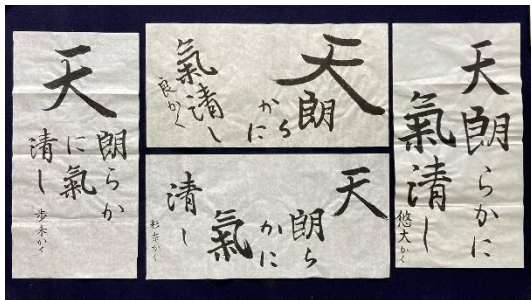 天朗らかに
氣清し
悠大かく
天朗
ら
かに
氣清し
良かく
天
朗ら
かに
氣
清し
かく
天
朗らか
に氣
清し
かく